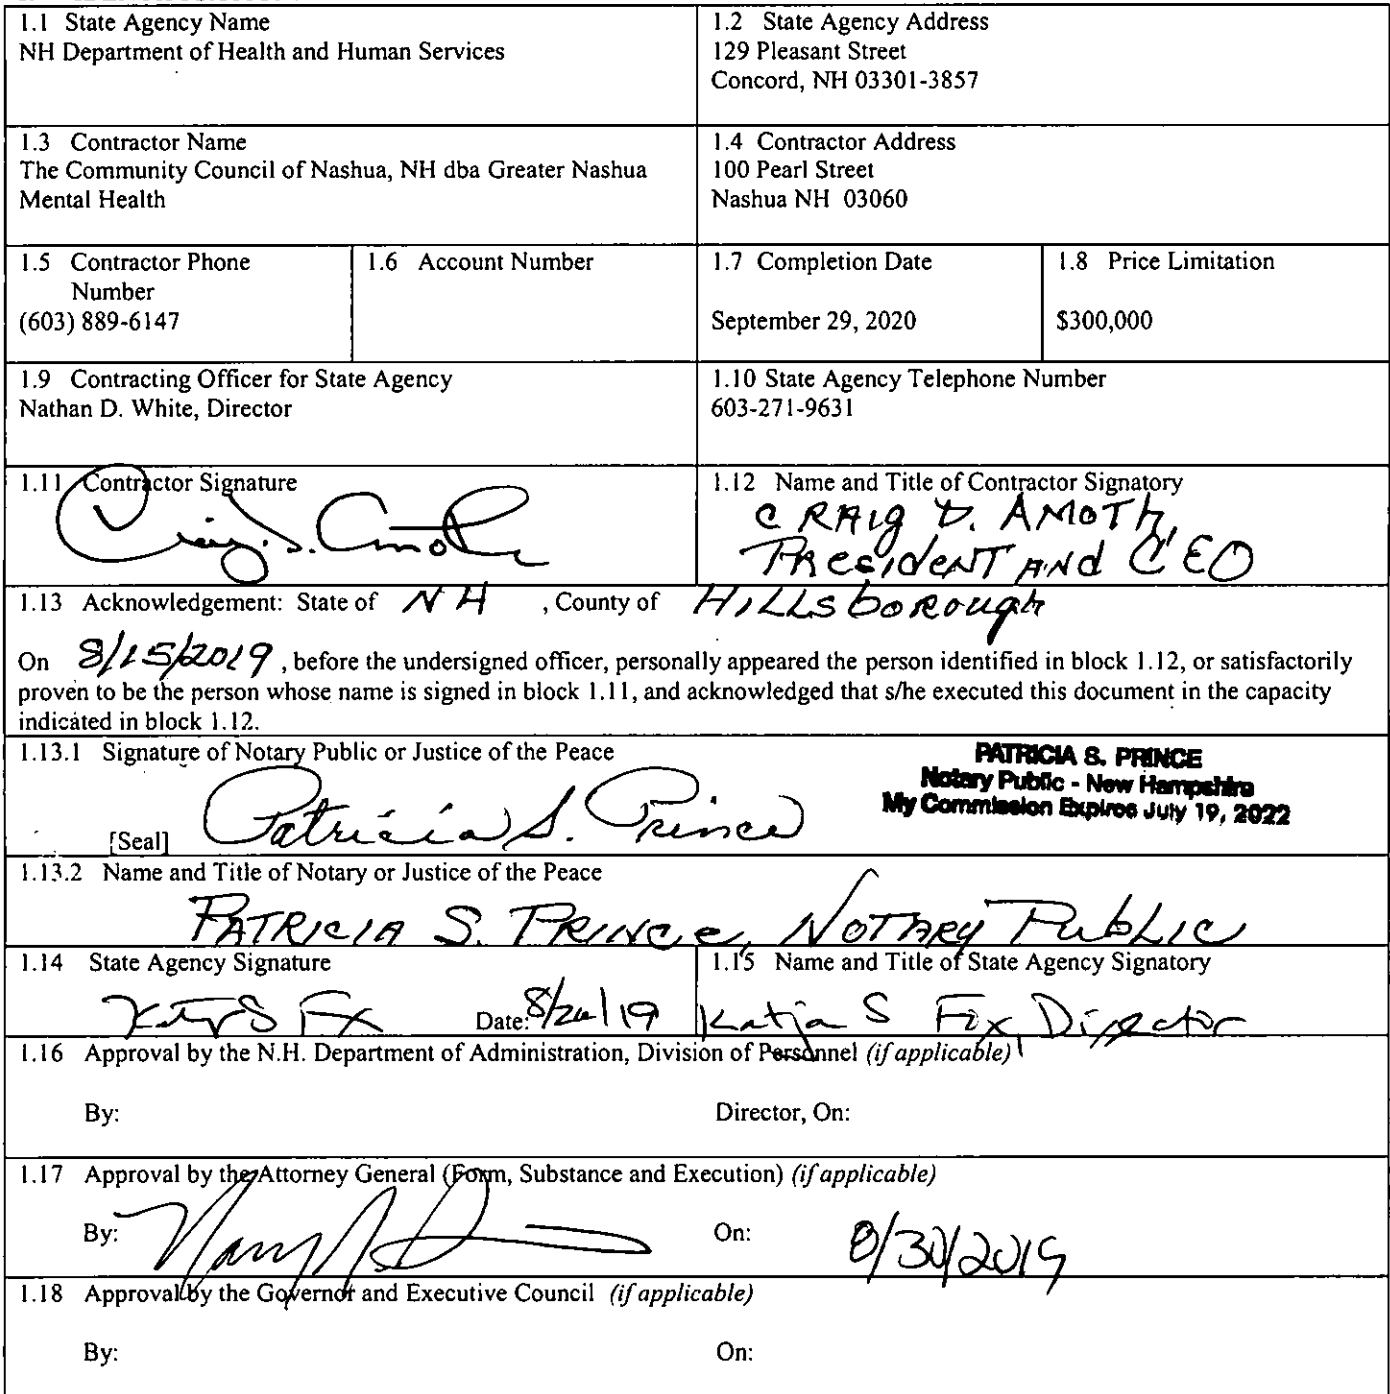 1.1 State Agency Name
NH Department of Health and Human Services
1.2 State Agency Address
129 Pleasant Street
Concord, NH 03301-3857
1.3 Contractor Name
The Community Council of Nashua, NH dba Greater Nashua
Mental Health
1.4 Contractor Address
100 Pearl Street
Nashua NH 03060
1.5 Contractor Phone
Number
(603) 889-6147
1.6 Account Number
1.7 Completion Date
September 29, 2020
1.8 Price Limitation
$300,000
1.9 Contracting Officer for State Agency
Nathan D. White, Director
1.10 State Agency Telephone Number
603-271-9631
1.11 Contractor Signature
1.12 Name and Title of Contractor Signatory
CRAIg D. AMOTh,
PResideNT ANd CEO
1.13 Acknowledgement: State of NH , County of HILLSboRough
On 8/15/2019 , before the undersigned officer, personally appeared the person identified in block 1.12, or satisfactorily
proven to be the person whose name is signed in block 1.11, and acknowledged that s/he executed this document in the capacity
indicated in block 1.12.
1.13.1 Signature of Notary Public or Justice of the Peace
PATRICIA S. PRINCE
Notary Public - New Hampshire
My Commission Expires July 19, 2022
[Seal] Patricia S. Prince
1.13.2 Name and Title of Notary or Justice of the Peace
PATRICIA S. PRINCe, NOTARY PubLIC
1.14 State Agency Signature
Date:
1.15 Name and Title of State Agency Signatory
Katja S Fox, Director
1.16 Approval by the N.H. Department of Administration, Division of Personnel (if applicable)
By: Director, On:
1.17 Approval by the Attorney General (Form, Substance and Execution) (if applicable)
By: On: 8/30/2019
1.18 Approval by the Governor and Executive Council (if applicable)
By: On: